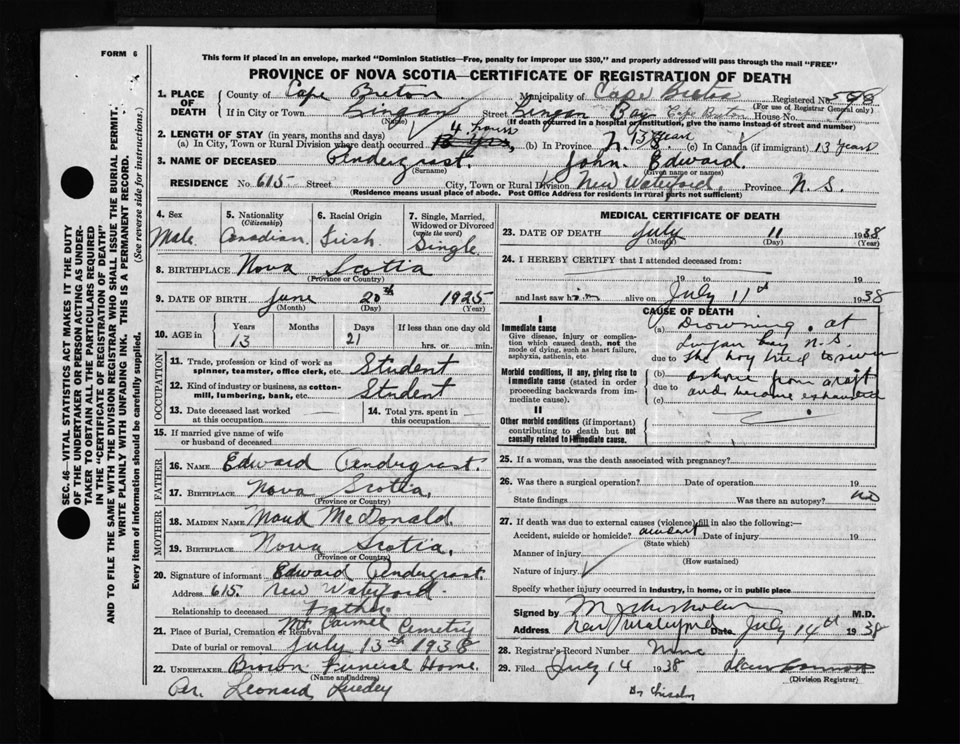 FORM 6
This form if placed in an envelope, marked "Dominion Statistics—Free, penalty for improper use $300," and properly addressed will pass through the mail "FREE"
PROVINCE OF NOVA SCOTIA—CERTIFICATE OF REGISTRATION OF DEATH
1. PLACE OF DEATH
County of Cape Breton Municipality of Cape Breton Registered No. 598
(For use of Registrar General only)
If in City or Town Lingan Street Lingan Bay Cape Breton House No.
(Name) (If death occurred in a hospital or institution, give the name instead of street and number)
2. LENGTH OF STAY (in years, months and days)
(a) In City, Town or Rural Division where death occurred 4 hours (b) In Province 13 Years (c) In Canada (if immigrant) 13 Years
3. NAME OF DECEASED Andergrast. John Edward.
(Surname) (Given name or names)
RESIDENCE No. 615 Street City, Town or Rural Division New Waterford. Province N. S.
(Residence means usual place of abode. Post Office Address for residents in rural parts not sufficient)
4. Sex Male
5. Nationality (Citizenship) Canadian
6. Racial Origin Irish
7. Single, Married, Widowed or Divorced (write the word) Single
8. BIRTHPLACE Nova Scotia
(Province or Country)
9. DATE OF BIRTH June 20th 1925
(Month) (Day) (Year)
10. AGE in Years Months Days If less than one day old
13 21 hrs. or min.
OCCUPATION
11. Trade, profession or kind of work as spinner, teamster, office clerk, etc. Student
12. Kind of industry or business, as cotton-mill, lumbering, bank, etc. Student
13. Date deceased last worked at this occupation
14. Total yrs. spent in this occupation
15. If married give name of wife or husband of deceased
FATHER
16. NAME Edward Andergrast.
17. BIRTHPLACE Nova Scotia,
(Province or Country)
MOTHER
18. MAIDEN NAME Maud McDonald.
19. BIRTHPLACE Nova Scotia,
(Province or Country)
20. Signature of informant Edward Andergrast.
Address 615. New Waterford.
Relationship to deceased Father
21. Place of Burial, Cremation or Removal Mt Carmel Cemetry
Date of burial or removal July 13th 1938
22. UNDERTAKER Brown Funeral Home.
(Name and address)
Per. Leonard
MEDICAL CERTIFICATE OF DEATH
23. DATE OF DEATH July 11 1938
(Month) (Day) (Year)
24. I HEREBY CERTIFY that I attended deceased from:
19 to 19
and last saw him alive on July 11th 1938
CAUSE OF DEATH
I
Immediate cause
Give disease, injury or complication which caused death, not the mode of dying, such as heart failure, asphyxia, asthenia, etc.
Morbid conditions, if any, giving rise to immediate cause (stated in order proceeding backwards from immediate).
II
Other morbid conditions (if important) contributing to death but not causally related to immediate cause.
(a) Drowning. at
Lingan Bay N. S.
due to the boy tried to swim
(b) ashore from a raft
due to and became exhausted
(c)
25. If a woman, was the death associated with pregnancy?
26. Was there a surgical operation? Date of operation 19
State findings Was there an autopsy? no
27. If death was due to external causes (violence) fill in also the following:—
Accident, suicide or homicide? accident Date of injury 19
(State which)
Manner of injury
(How sustained)
Nature of injury
Specify whether injury occurred in Industry, in home, or in public place
Signed by M.D.
Address New Waterford Date July 14th 1938
28. Registrar's Record Number
29. Filed July 14 1938
(Division Registrar)
SEC. 46—VITAL STATISTICS ACT MAKES IT THE DUTY
OF THE UNDERTAKER OR PERSON ACTING AS UNDER-
TAKER TO OBTAIN ALL THE PARTICULARS REQUIRED
IN THE "CERTIFICATE OF REGISTRATION OF DEATH"
AND TO FILE THE SAME WITH THE DIVISION REGISTRAR WHO SHALL ISSUE THE BURIAL PERMIT.
WRITE PLAINLY WITH UNFADING INK. THIS IS A PERMANENT RECORD.
Every item of information should be carefully supplied. (See reverse side for instructions.)